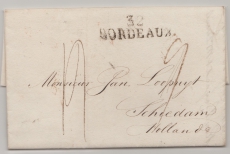 32
BORDEAUX.
Monsieur Jan Loopuyt
Schiedam
Hollande